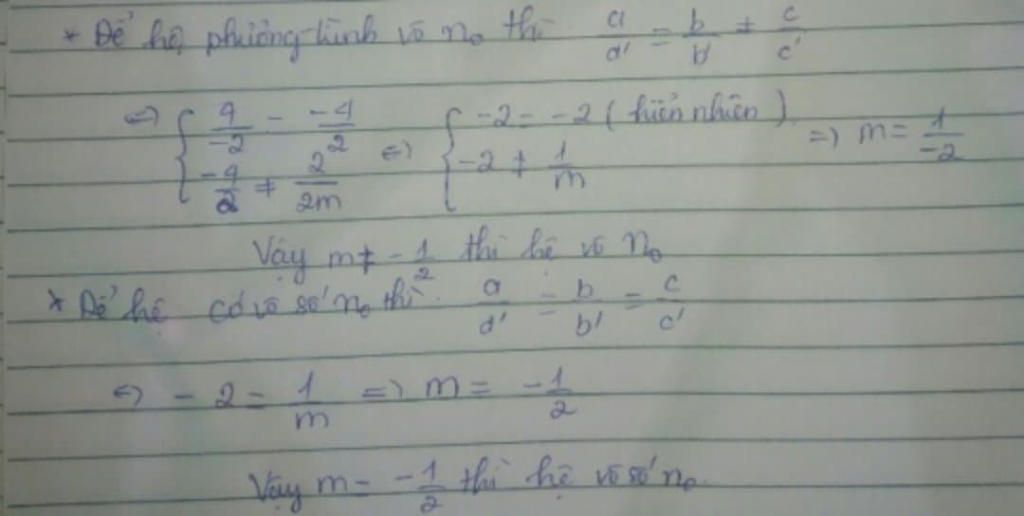 * Để hệ phương trình vô n₀ thì a/a' = b/b' ≠ c/c'
⇔ { 4/-2 = -4/2 ; -4/2 ≠ 2/2m ⇔ { -2 = -2 (hiển nhiên) ; -2 ≠ 1/m ⇒ m = 1/-2
Vậy m ≠ -1/2 thì hệ vô n₀
* Để hệ có vô số n₀ thì a/a' = b/b' = c/c'
⇔ -2 = 1/m ⇒ m = -1/2
Vậy m = -1/2 thì hệ vô số n₀.